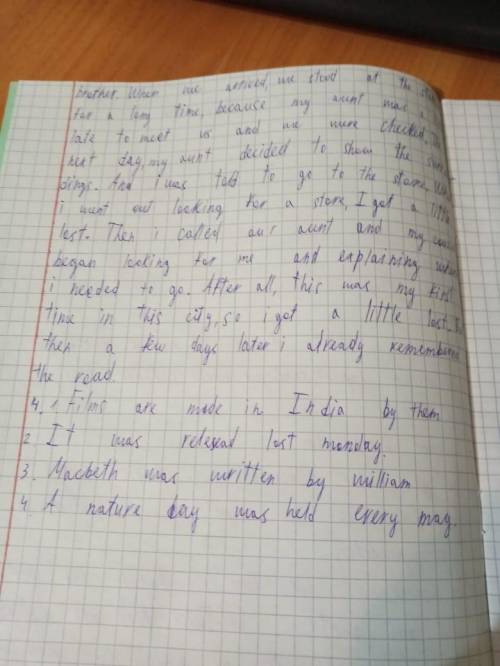 brother. When we arrived, we stood at the
for a long time, because my aunt was a
late to meet us and we were checked.
next day, my aunt decided to show the
dings. And i was told to go to the store.
i went out looking for a store, I got a little
lost. Then i called our aunt and my
began looking for me and explaining
i needed to go. After all, this was my first
time in this city, so i got a little lost.
then a few days later i already remembered
the road.
4. 1. Films are made in India by them
2. It was relesead last monday.
3. Macbeth was written by william
4. A nature day was held every may.